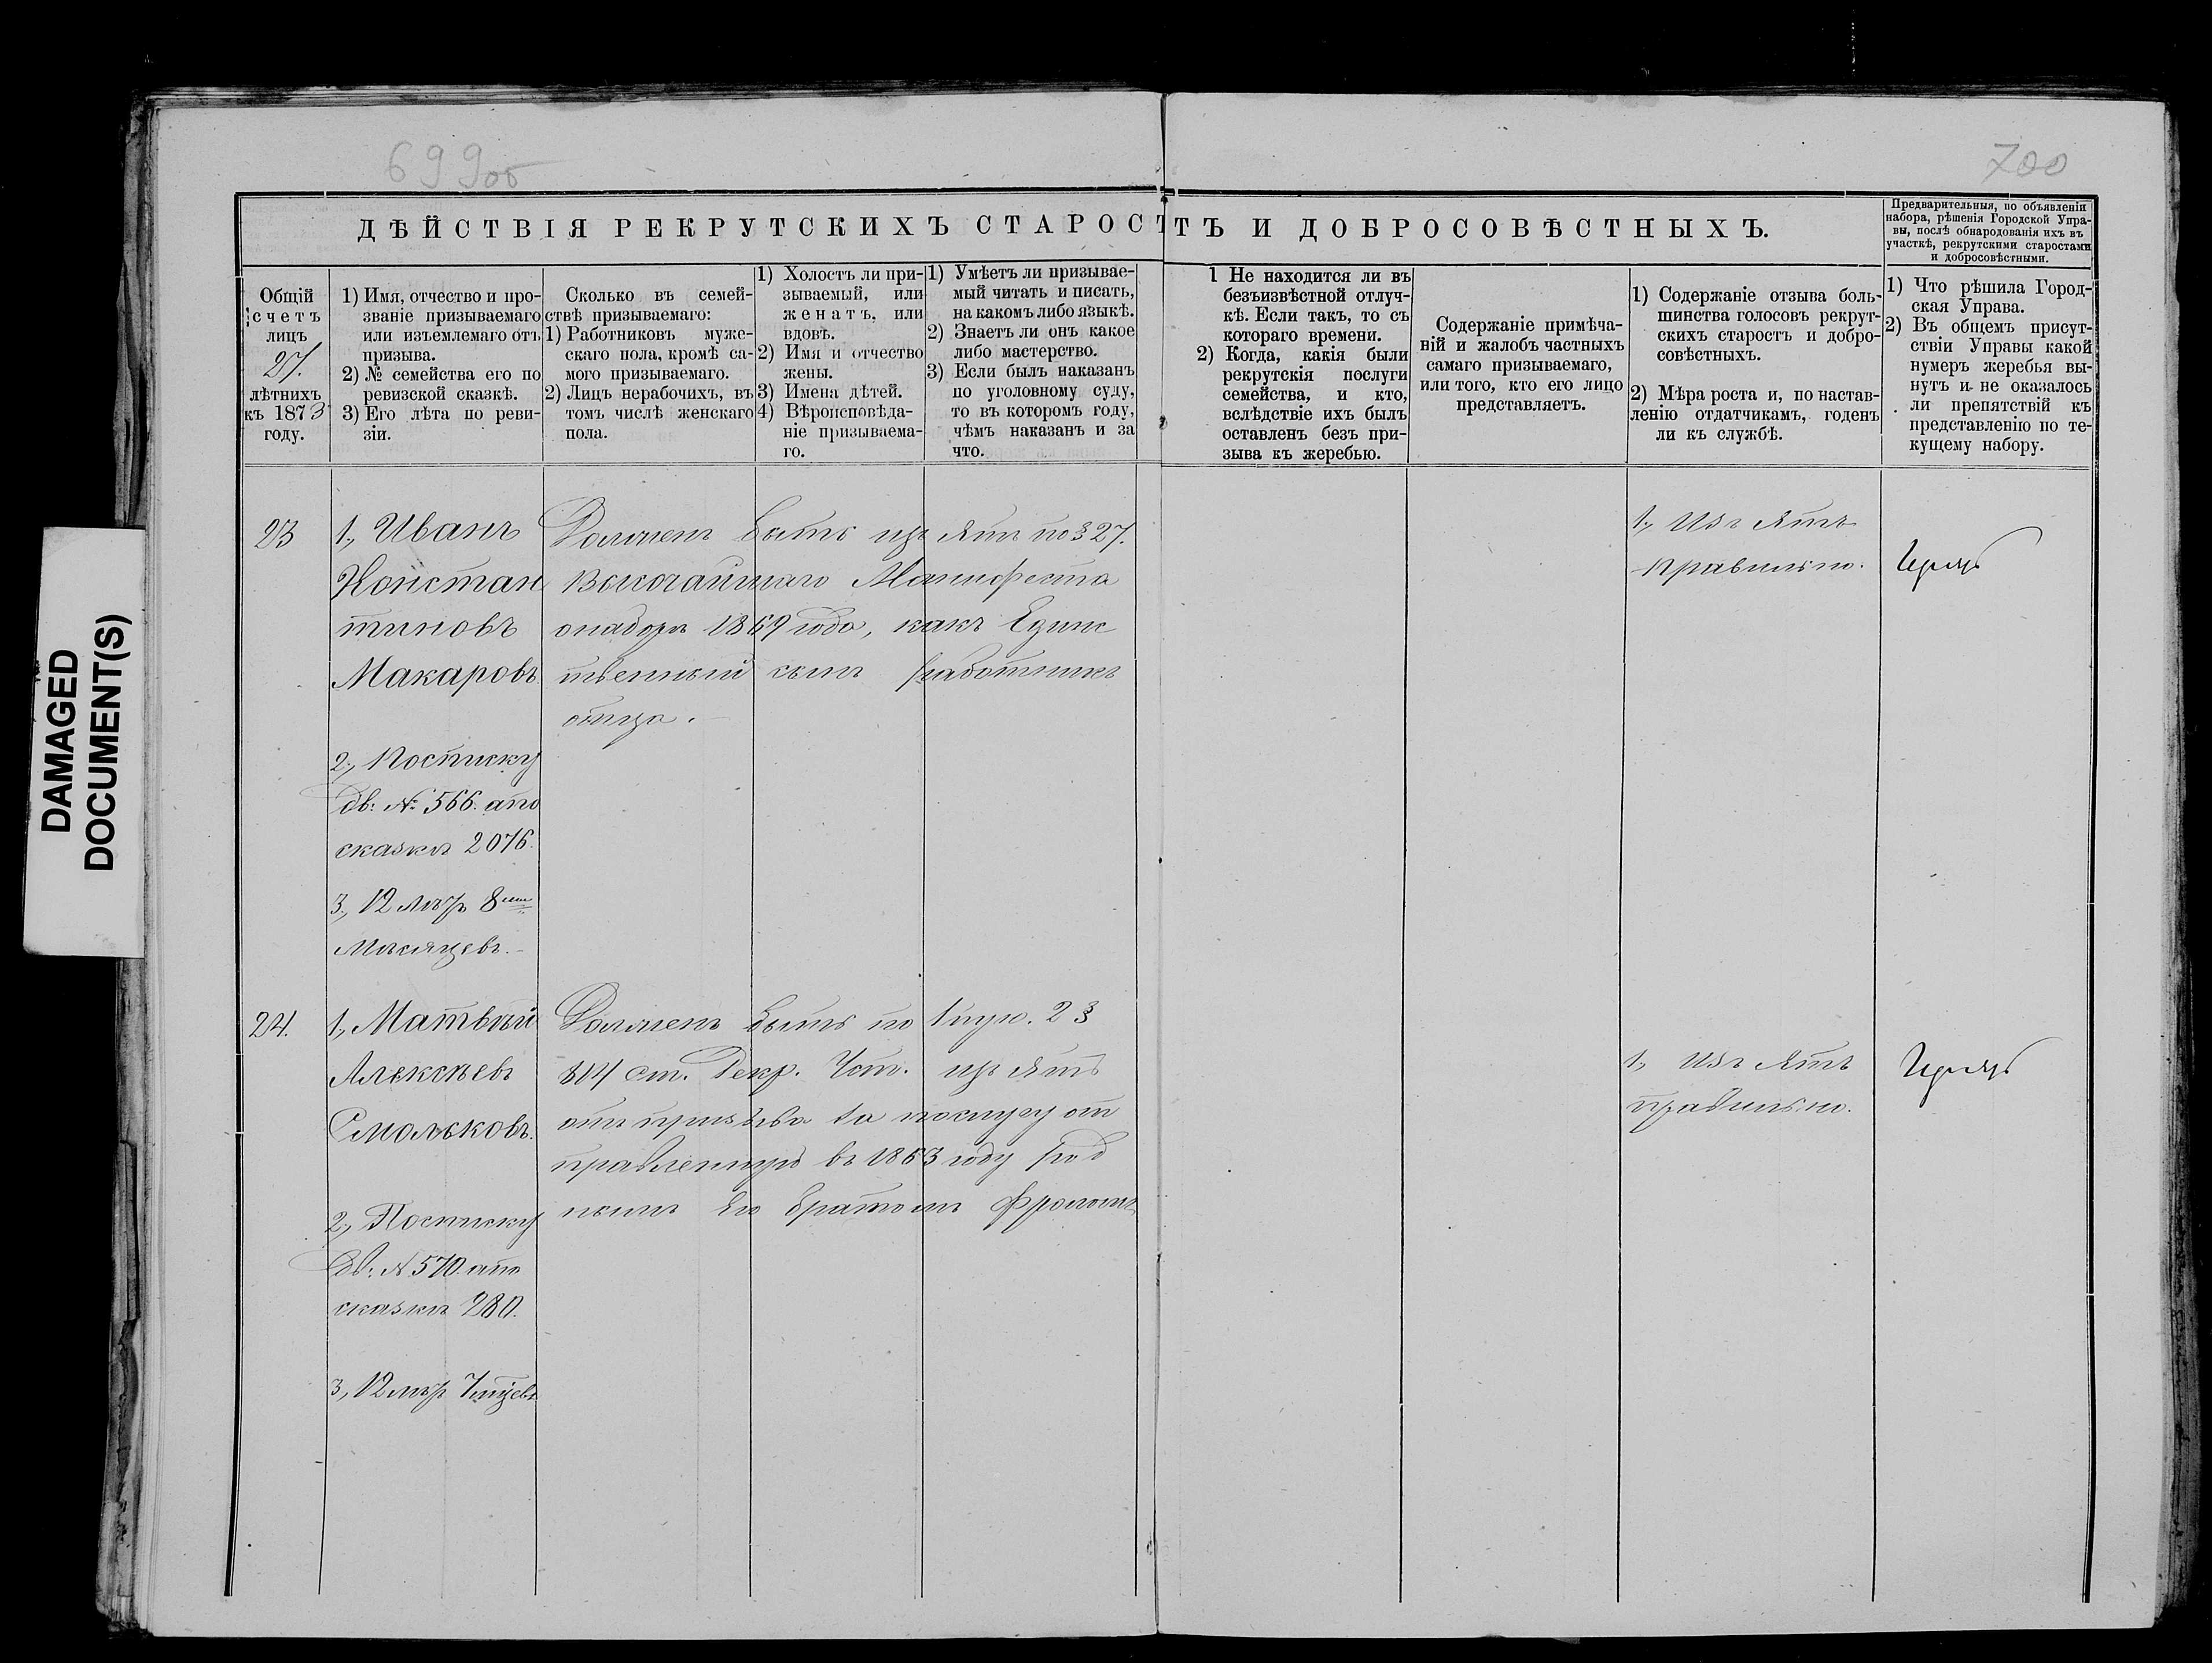 DAMAGED
DOCUMENT(S)
699об
700
ДѢЙСТВІЯ РЕКРУТСКИХЪ СТАРОСТЪ И ДОБРОСОВѢСТНЫХЪ.
Предварительныя, по объявленіи
набора, рѣшенія Городской Упра-
вы, послѣ обнародованія ихъ въ
участкѣ, рекрутскими старостами
и добросовѣстными.
Общій
счетъ
лицъ
27.
лѣтнихъ
къ 1873
году.
1) Имя, отчество и про-
званіе призываемаго
или изъемлемаго отъ
призыва.
2) № семейства его по
ревизской сказкѣ.
3) Его лѣта по реви-
зіи.
Сколько въ семей-
ствѣ призываемаго:
1) Работниковъ муже-
скаго пола, кромѣ са-
мого призываемаго.
2) Лицъ нерабочихъ, въ
томъ числѣ женскаго
пола.
1) Холостъ ли при-
зываемый, или
женатъ, или
вдовъ.
2) Имя и отчество
жены.
3) Имена дѣтей.
4) Вѣроисповѣда-
ніе призываема-
го.
1) Умѣетъ ли призывае-
мый читать и писать,
на какомъ либо языкѣ.
2) Знаетъ ли онъ какое
либо мастерство.
3) Если былъ наказанъ
по уголовному суду,
то въ которомъ году,
чѣмъ наказанъ и за
что.
1 Не находится ли въ
безъизвѣстной отлуч-
кѣ. Если такъ, то съ
котораго времени.
2) Когда, какія были
рекрутскія послуги
семейства, и кто,
вслѣдствіе ихъ былъ
оставленъ безъ при-
зыва къ жеребью.
Содержаніе примѣча-
ній и жалобъ частныхъ
самаго призываемаго,
или того, кто его лицо
представляетъ.
1) Содержаніе отзыва боль-
шинства голосовъ рекрут-
скихъ старостъ и добро-
совѣстныхъ.
2) Мѣра роста и, по настав-
ленію отдатчикамъ, годенъ
ли къ службѣ.
1) Что рѣшила Город-
ская Управа.
2) Въ общемъ присут-
ствіи Управы какой
нумеръ жеребья вы-
нутъ и не оказалось
ли препятствій къ
представленію по те-
кущему набору.
23
1., Иванъ
Константи
тиновъ
Макаровъ
2., Посписку
дв: № 566. апо
сказкѣ 2076.
3., 12 лѣтъ 8ми
Мѣсяцевъ.
Долженъ быть изъятъ по § 27.
Высочайшаго Манифеста
онаборѣ 1869 года, какъ Единс
твенный сынъ работникъ
отца.
1., Изъятъ
правильно.
24.
1., Матвѣй
Алексѣевъ
Смольковъ.
2., Посписку
Дв: № 570. апо
сказкѣ 280.
3., 12 лѣтъ 7 мцевъ
Долженъ быть по 1 пун. 2 §
814 ст. Рекр. Уст. изъятъ
отъ призыва за послугу от
правленную въ 1863 году род
нымъ Его братомъ Фроломъ
1., Изъятъ
правильно.